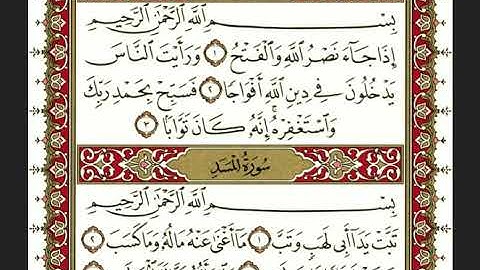 بِسْمِ ٱللَّهِ ٱلرَّحْمَٰنِ ٱلرَّحِيمِ
إِذَا جَآءَ نَصْرُ ٱللَّهِ وَٱلْفَتْحُ ١ وَرَأَيْتَ ٱلنَّاسَ
يَدْخُلُونَ فِى دِينِ ٱللَّهِ أَفْوَاجًا ٢ فَسَبِّحْ بِحَمْدِ رَبِّكَ
وَٱسْتَغْفِرْهُ ۚ إِنَّهُۥ كَانَ تَوَّابًۢا ٣
سُورَةُ المَسَدِ
بِسْمِ ٱللَّهِ ٱلرَّحْمَٰنِ ٱلرَّحِيمِ
تَبَّتْ يَدَآ أَبِى لَهَبٍ وَتَبَّ ١ مَآ أَغْنَىٰ عَنْهُ مَالُهُۥ وَمَا كَسَبَ ٢